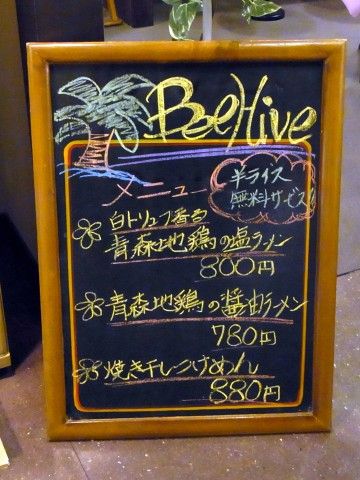 BeeHive
メニュー
半ライス
無料サービス!
白トリュフ香る
青森地鶏の塩ラーメン
800円
青森地鶏の醤油ラーメン
780円
焼き干しつけめん
880円